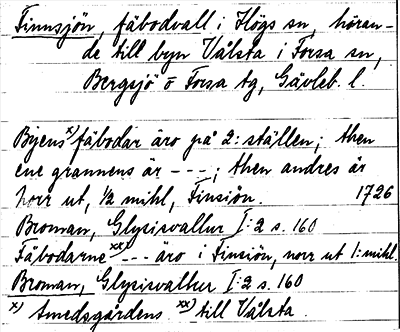 Finnsjön, fäbodvall i Högs sn, höran-
de till byn Vålsta i Forsa sn,
Bergsjö o Forsa tg, Gävleb. l.
Byens x) fäbodar äro på 2: ställen; then
ene grannens är - - -; then andres är
norr ut, 1/2 mihl, Finsiön. 1726
Broman, Glysisvallur I:2 s. 160
Fäbodarne xx) - - - äro i Finsiön, norr ut 1: mihl.
Broman, Glysisvallur I:2 s. 160
x) Smedsgårdens xx) till Vålsta.